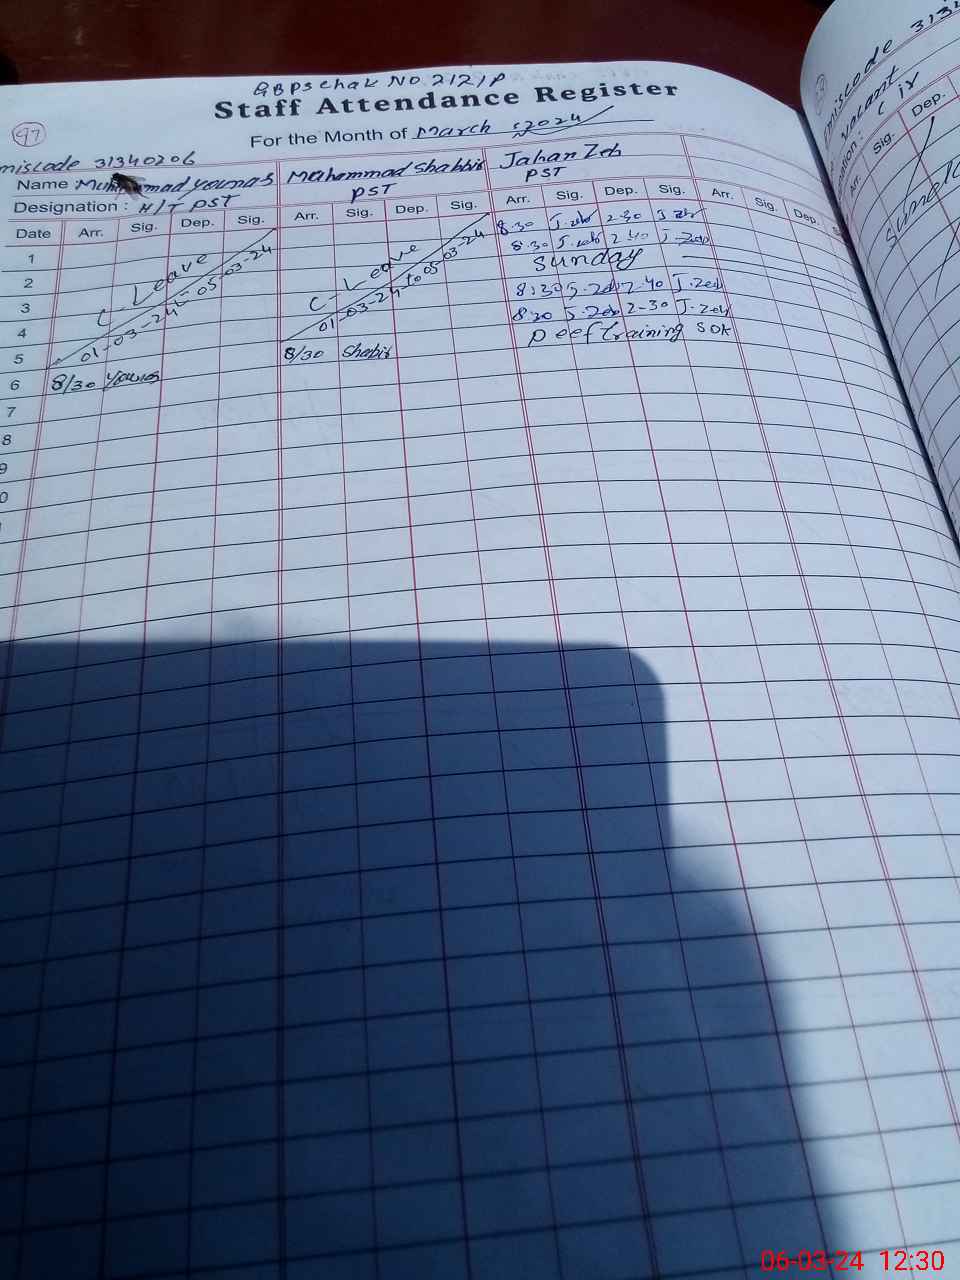 GBPS Chak No. 212/P
Staff Attendance Register
97
For the Month of March 2024
miscode 31340206
Name Muhammad Younas Muhammad Shabbir Jahan Zeb
Designation : H/T PST PST PST
Date Arr. Sig. Dep. Sig. Arr. Sig. Dep. Sig. Arr. Sig. Dep. Sig. Arr. Sig. Dep.
1 8:30 J.zeb 2-30 J.zeb
2 C-Leave C-Leave 8:30 J.zeb 2 40 J.zeb
3 01-03-24 to 05-03-24 01-03-24 to 05-03-24 Sunday
4 8:30 J.Zeb 2-40 J.Zeb
5 8:30 J.Zeb 2-30 J.Zeb
6 8/30 Younas 8/30 Shabir Training SDK
7
8
9
0
miscode 313
vacant
ation :
Arr. Sig. Dep.
06-03-24 12:30